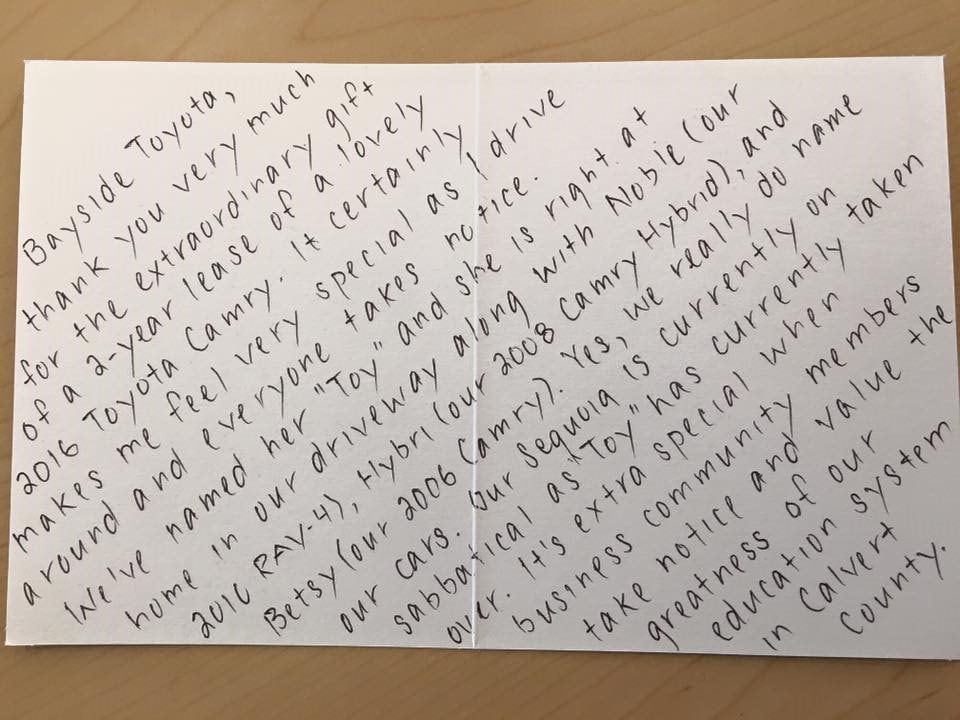 Bayside Toyota,
thank you very much
for the extraordinary gift
of a 2-year lease of a lovely
2016 Toyota Camry. It certainly
makes me feel very special as I drive
around and everyone takes notice.
We've named her "Toy" and she is right at
home in our driveway along with Noble (our
2016 RAV-4), Hybri (our 2008 Camry Hybrid), and
Betsy (our 2006 Camry). Yes, we really do name
our cars. Our Sequoia is currently on
sabbatical as "Toy" has currently taken
over. It's extra special when
business community members
take notice and value the
greatness of our
education system
in Calvert
County.